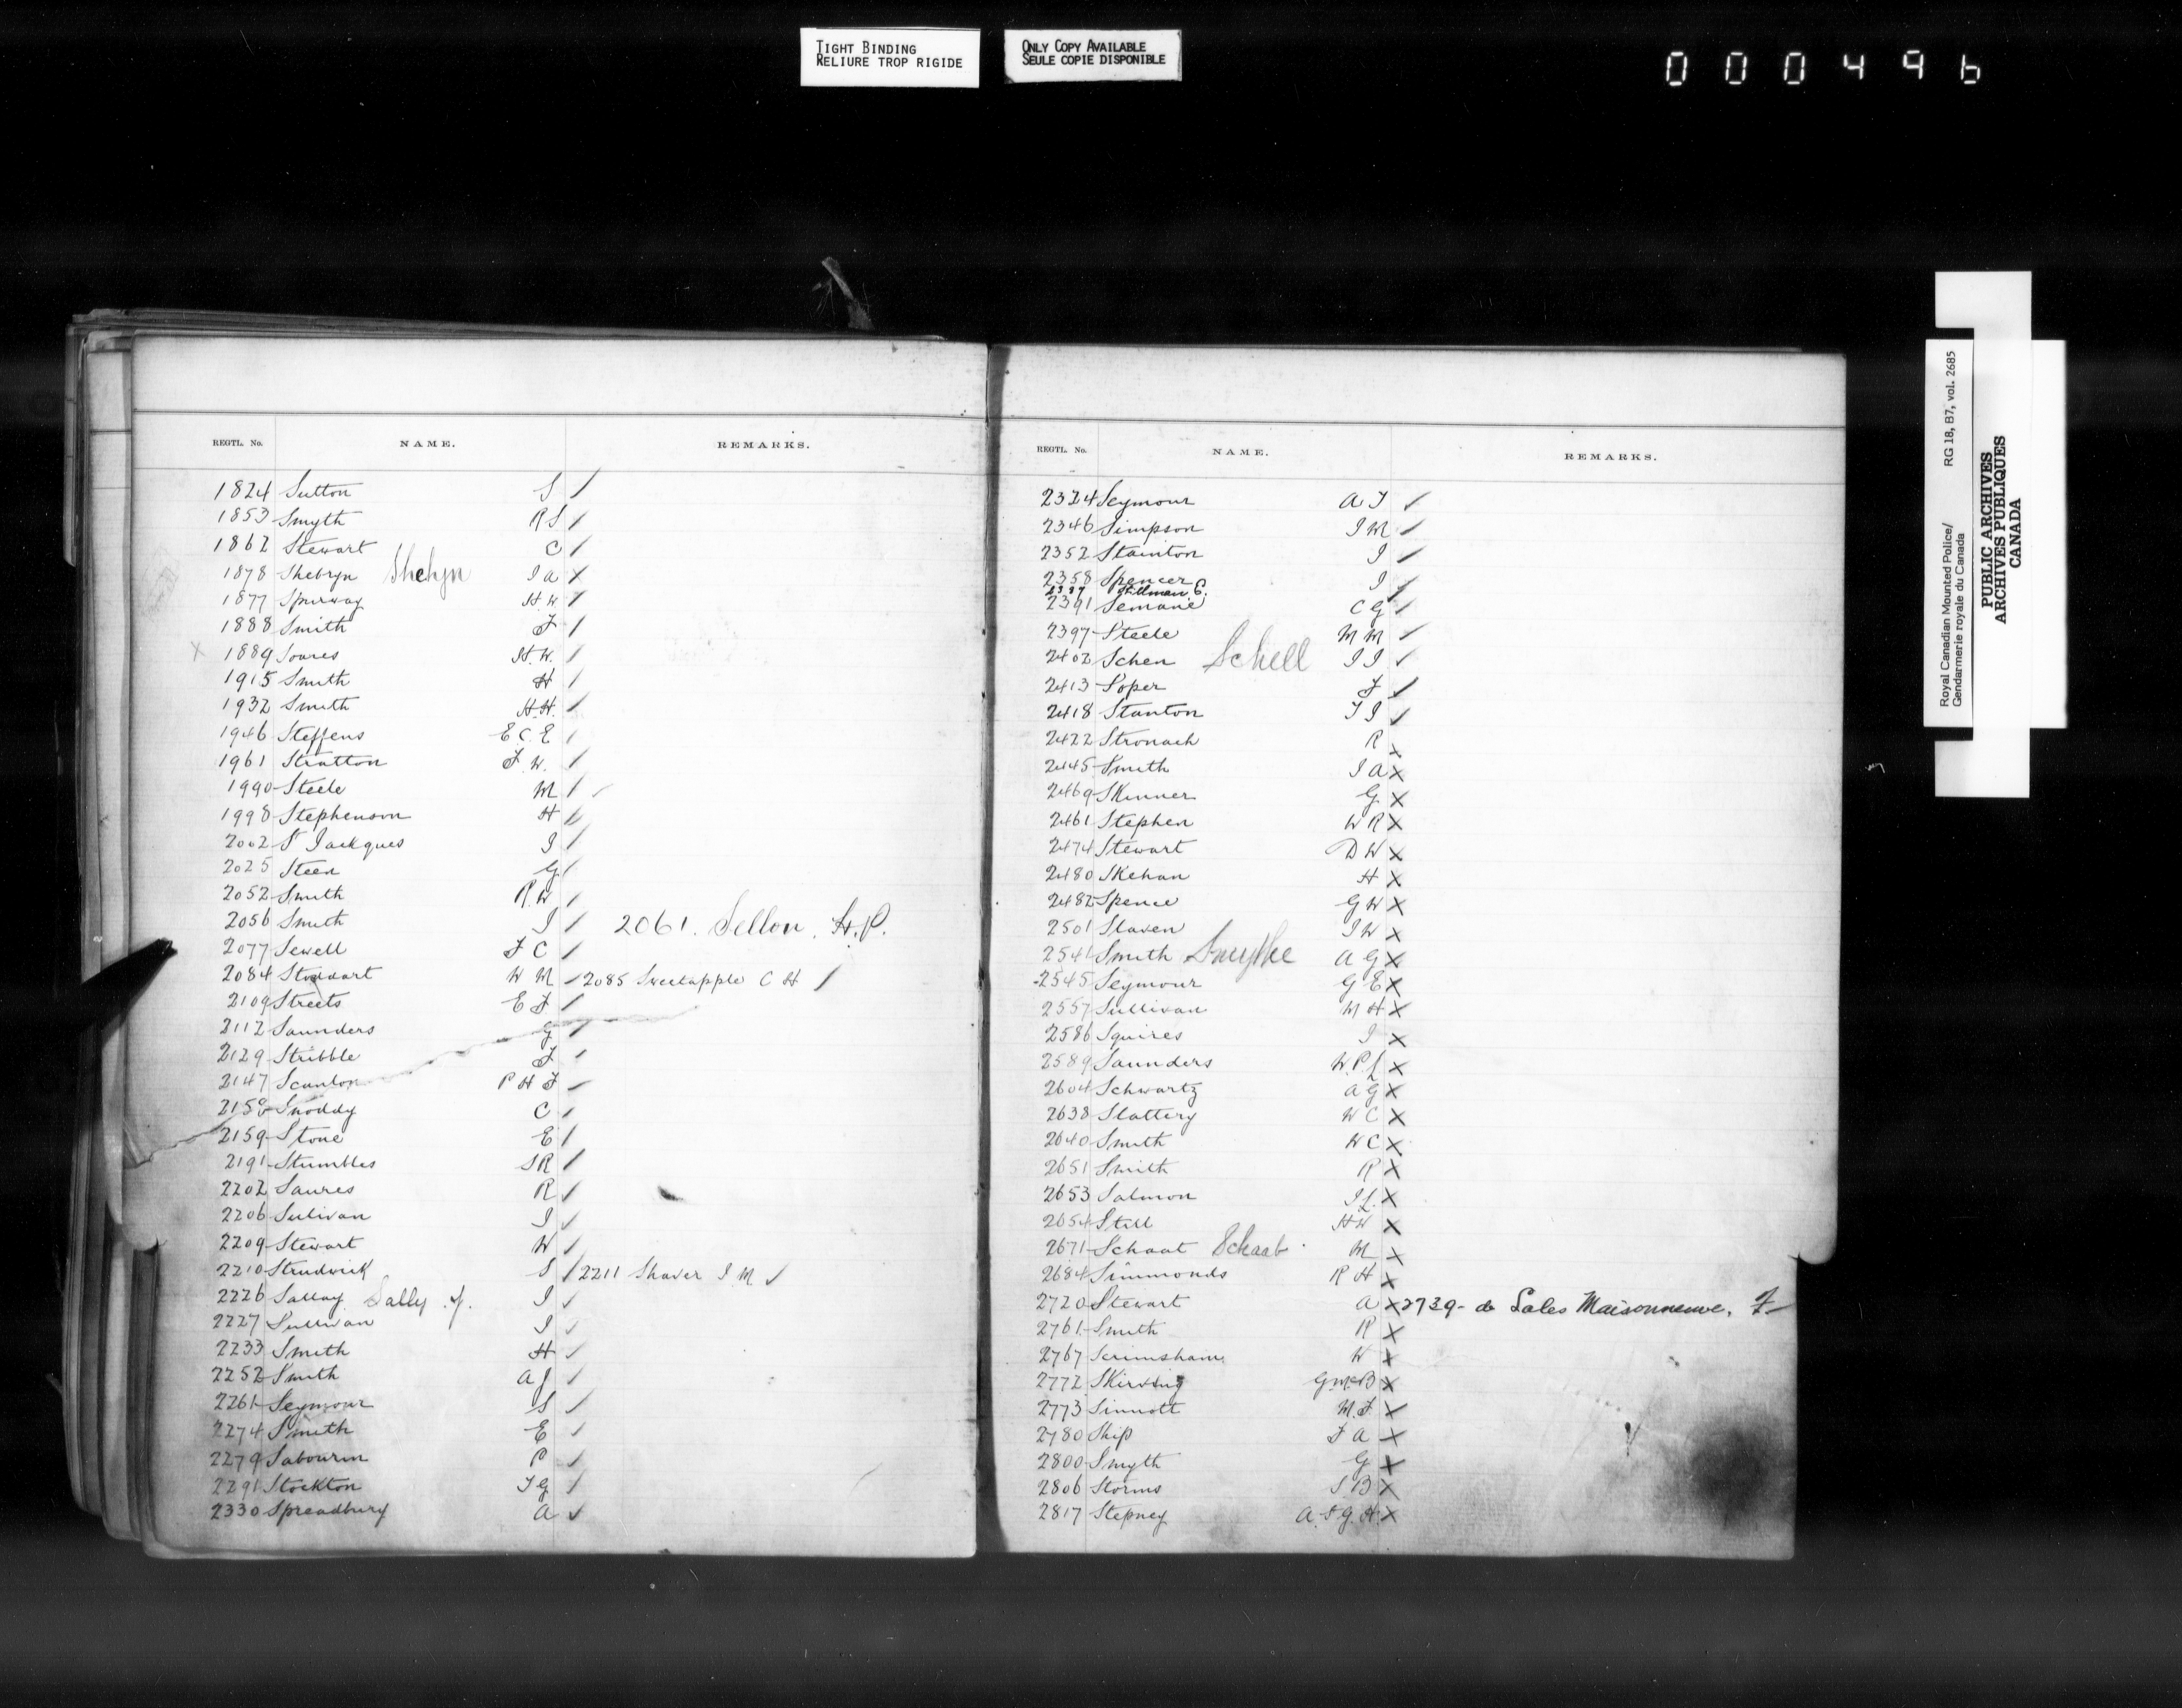 TIGHT BINDING
RELIURE TROP RIGIDE
ONLY COPY AVAILABLE
SEULE COPIE DISPONIBLE
000496
REGTL. No. NAME. REMARKS.
1824 Sutton S /
1853 Smyth R S /
1862 Stewart C /
1878 Shebryn Shehyn J A X
1877 Spurway H.W /
1888 Smith F /
X 1889 Soares H.W. /
1915 Smith H /
1932 Smith H.H. /
1946 Steffens E C. E /
1961 Stratton F. W. /
1990 Steele M /
1998 Stephenson H /
2002 St Jackques J /
2025 Steen G /
2052 Smith R.W /
2056 Smith J / 2061. Sellon. H.P.
2077 Sewell F C /
2084 Stoddart W M / 2085 Sweetapple C H /
2109 Streets E F /
2112 Saunders G /
2129 Stribble F /
2147 Scanlon P H F /
2158 Snoddy C /
2159 Stone E /
2191 Stumbles S R /
2202 Saures R /
2206 Sulivan J /
2209 Stewart W /
2210 Strudwick S / 2211 Shaver J. M /
2226 Sallay Sally .J. J /
2227 Sullivan J /
2233 Smith H /
2252 Smith A J /
2261 Seymour S /
2274 Smith E /
2279 Sabourin P /
2291 Stockton T G /
2330 Spreadbury A /
REGTL. No. NAME. REMARKS.
2324 Seymour A T /
2346 Simpson J M /
2352 Stainton J /
2358 Spencer J /
2387 Stillman C.
2391 Semane C G /
2397 Steele M M /
2402 Schen Schell J J /
2413 Soper F /
2418 Stanton T J /
2422 Stronach R X
2445 Smith J A X
2469 Skinner G X
2461 Stephen W R X
2474 Stewart D W X
2480 Skehan H X
2482 Spence G W X
2501 Slaven J W X
2541 Smith Smythe A G X
2545 Seymour G E X
2557 Sullivan M H X
2586 Squires J X
2589 Saunders W. P. L X
2604 Schwartz A G X
2638 Slattery W C X
2640 Smith W C X
2651 Smith R X
2653 Salmon J L. X
2654 Still H W X
2671 Schaat Schaab M X
2684 Simmonds R H X
2720 Stewart A X 2739- de Sales Maisonneuve, F
2761 Smith R X
2767 Scrimsham W X
2772 Skirving G McB X
2773 Sinnott M. F. X
2780 Ship F A X
2800 Smyth G X
2806 Storms S. B X
2817 Stepney A. F G. H. X
Royal Canadian Mounted Police/ RG 18, B7, vol. 2685
Gendarmerie royale du Canada
PUBLIC ARCHIVES
ARCHIVES PUBLIQUES
CANADA